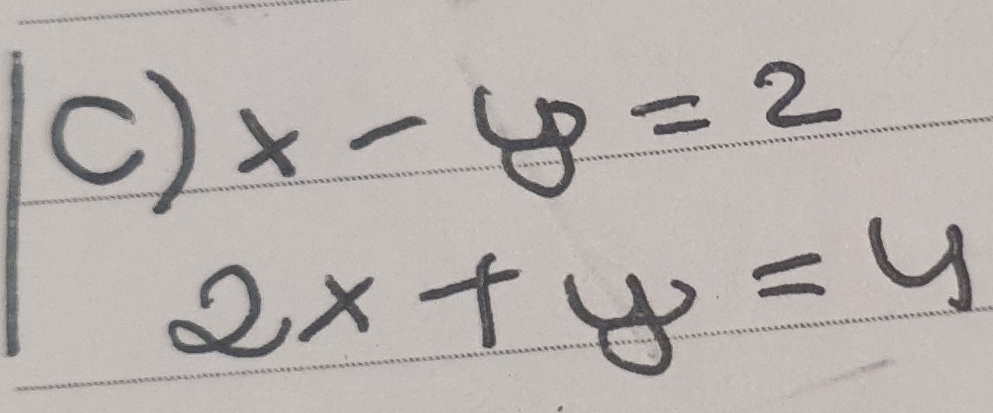 C) x - y = 2
2x + y = 4